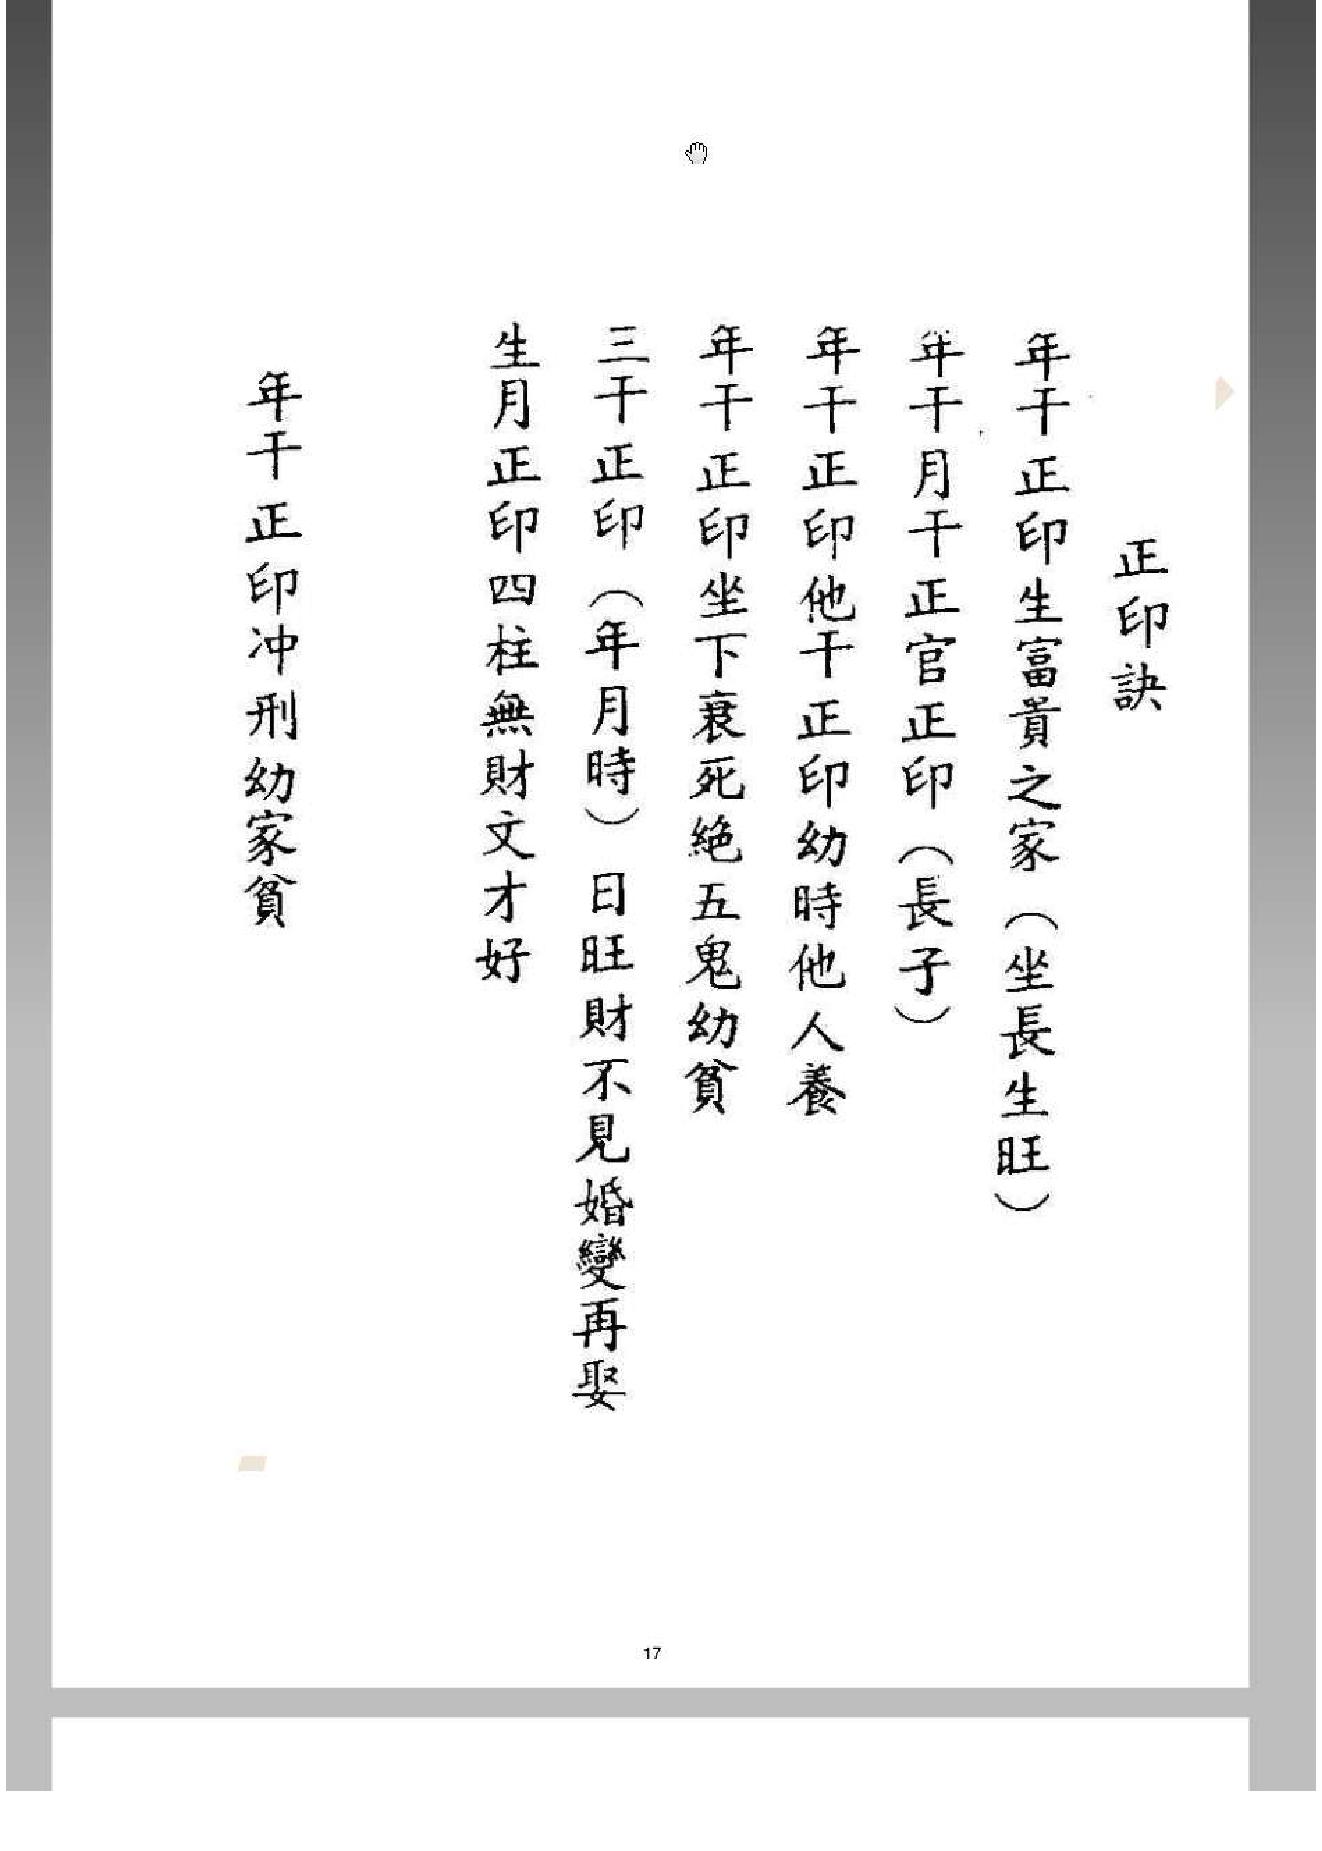 正印訣
年干正印生富貴之家（坐長生旺）
年干月干正官正印（長子）
年干正印他干正印幼時他人養
年干正印坐下衰死絕五鬼幼貧
三干正印（年月時）日旺財不見婚變再娶
生月正印四柱無財文才好
年干正印冲刑幼家貧
17